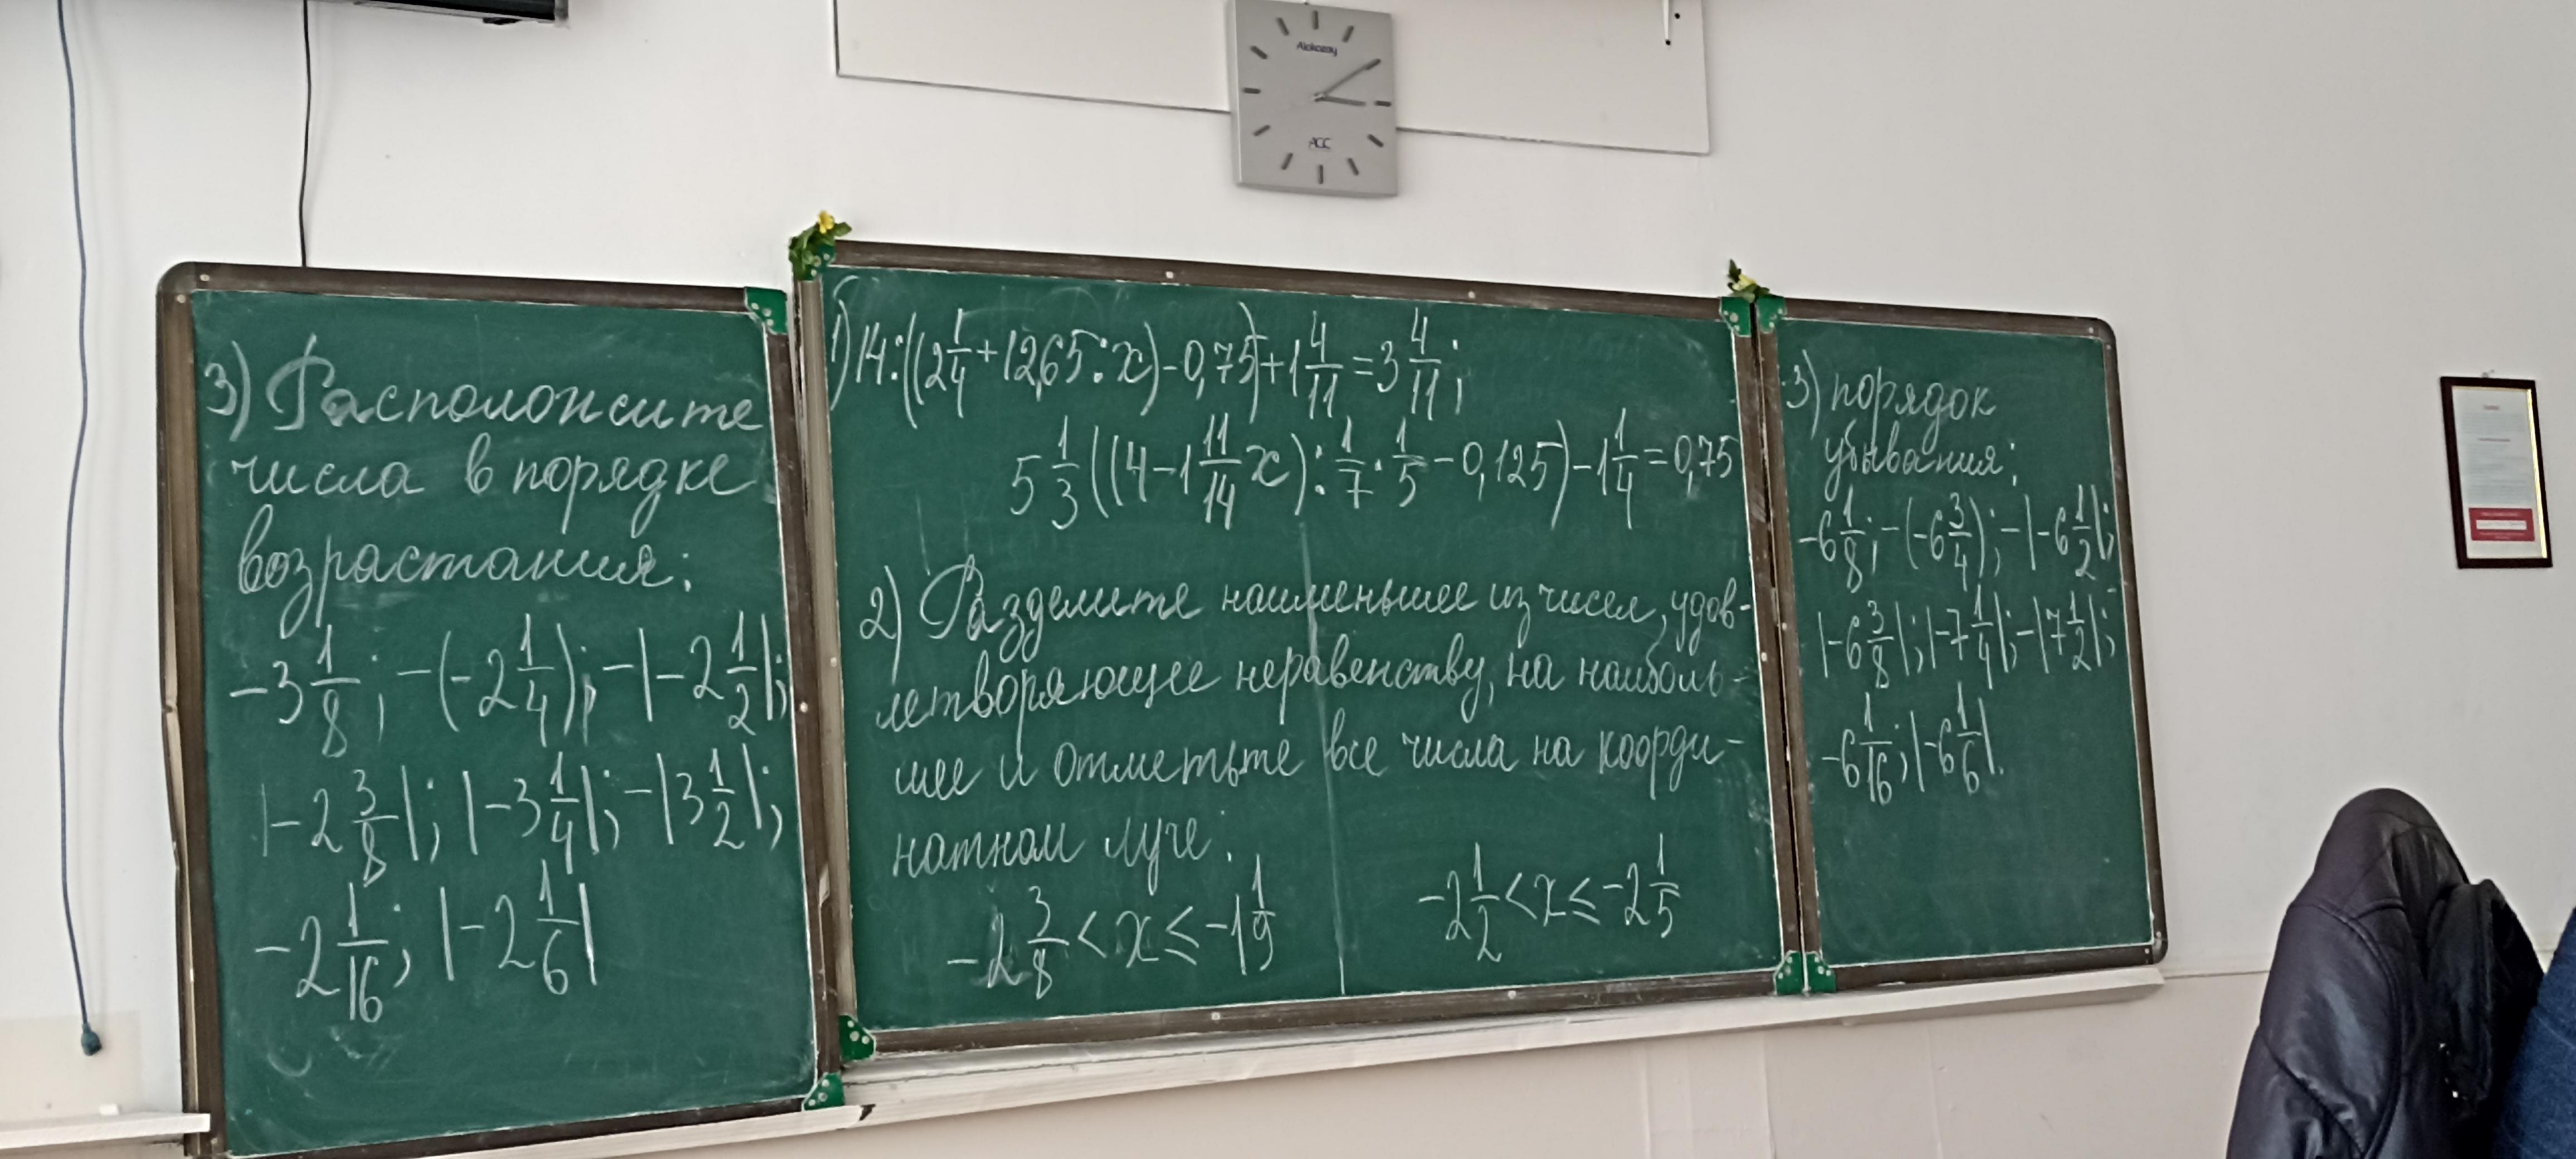 Alokozay
ACC
3) Расположите
числа в порядке
возрастания:
-3 1/8; -(-2 1/4); -|-2 1/2|;
|-2 3/8|; |-3 1/4|; -|3 1/2|;
-2 1/16; |-2 1/6|
1) 14:((2 1/4+12,65:x)-0,75)+1 4/11=3 4/11;
5 1/3((4-1 11/14x):1/7·1/5-0,125)-1 1/4=0,75
2) Разделите наименьшее из чисел, удов-
летворяющее неравенству, на наиболь-
шее и отметьте все числа на коорди-
натном луче:
-2 3/8<x≤-1 1/9
-2 1/2<x≤-2 1/5
3) порядок
убывания;
-6 1/8; -(-6 3/4); -|-6 1/2|;
|-6 3/8|; |-7 1/4|; -|7 1/2|;
-6 1/16; |-6 1/6|.